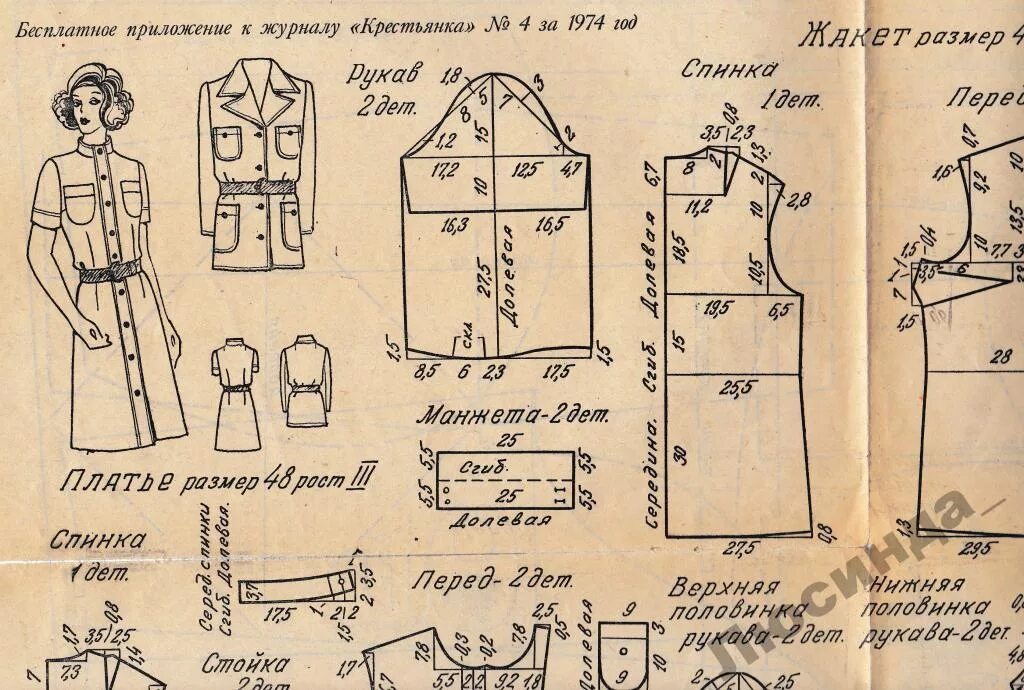 Бесплатное приложение к журналу «Крестьянка» № 4 за 1974 год
Жакет размер 4
Рукав
2 дет.
1,8
5
3
7
8
15
1,2
2
1
17,2
12,5
4,7
10
16,3
16,5
27,5
Долевая
скл
1,5
1,5
8,5
6
2,3
17,5
Спинка
1 дет.
0,8
3,5
2,3
1,3
6,7
8
2
2
11,2
10
2,8
18,5
10,5
19,5
6,5
15
25,5
30
Середина. Сгиб. Долевая
27,5
0,8
Перед
0,7
1,6
9,2
10
13,5
1,5
0,4
10
7,7
3
1
3,5
6
7
1,5
28
1,3
29,5
Манжета-2 дет.
25
5,5
5,5
Сгиб.
5,5
25
5,5
Долевая
Платье размер 48 рост III
Спинка
1 дет.
0,8
1,7
3,5
2,5
1,4
7
7,3
Серед. спинки
Сгиб. Долевая.
3,7
17,5
1
2
2
1
3,5
2
1,5
Стойка
2 дет.
Перед-2 дет.
1,7
7,8
0,3
0,2
7,8
2,5
0,5
5,7
5,5
2
2
9,2
1,8
Долевая
9
3
10
9
Верхняя
половинка
рукава-2 дет.
2
5
2,5
Нижняя
половинка
рукава-2 дет.
4,8
Люсинда